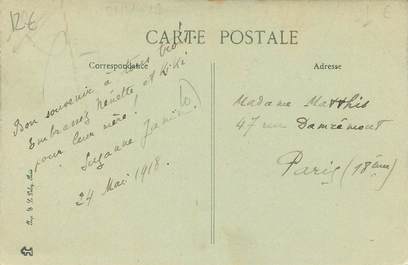 12€
CARTE POSTALE
Correspondance
Adresse
Bon souvenir à tous trois.
Embrassez Nénette et Kiki
pour leur mère !
Suzanne
24 Mai 1918.
Madame Matthis
47 rue Damrémont
Paris (18ème)